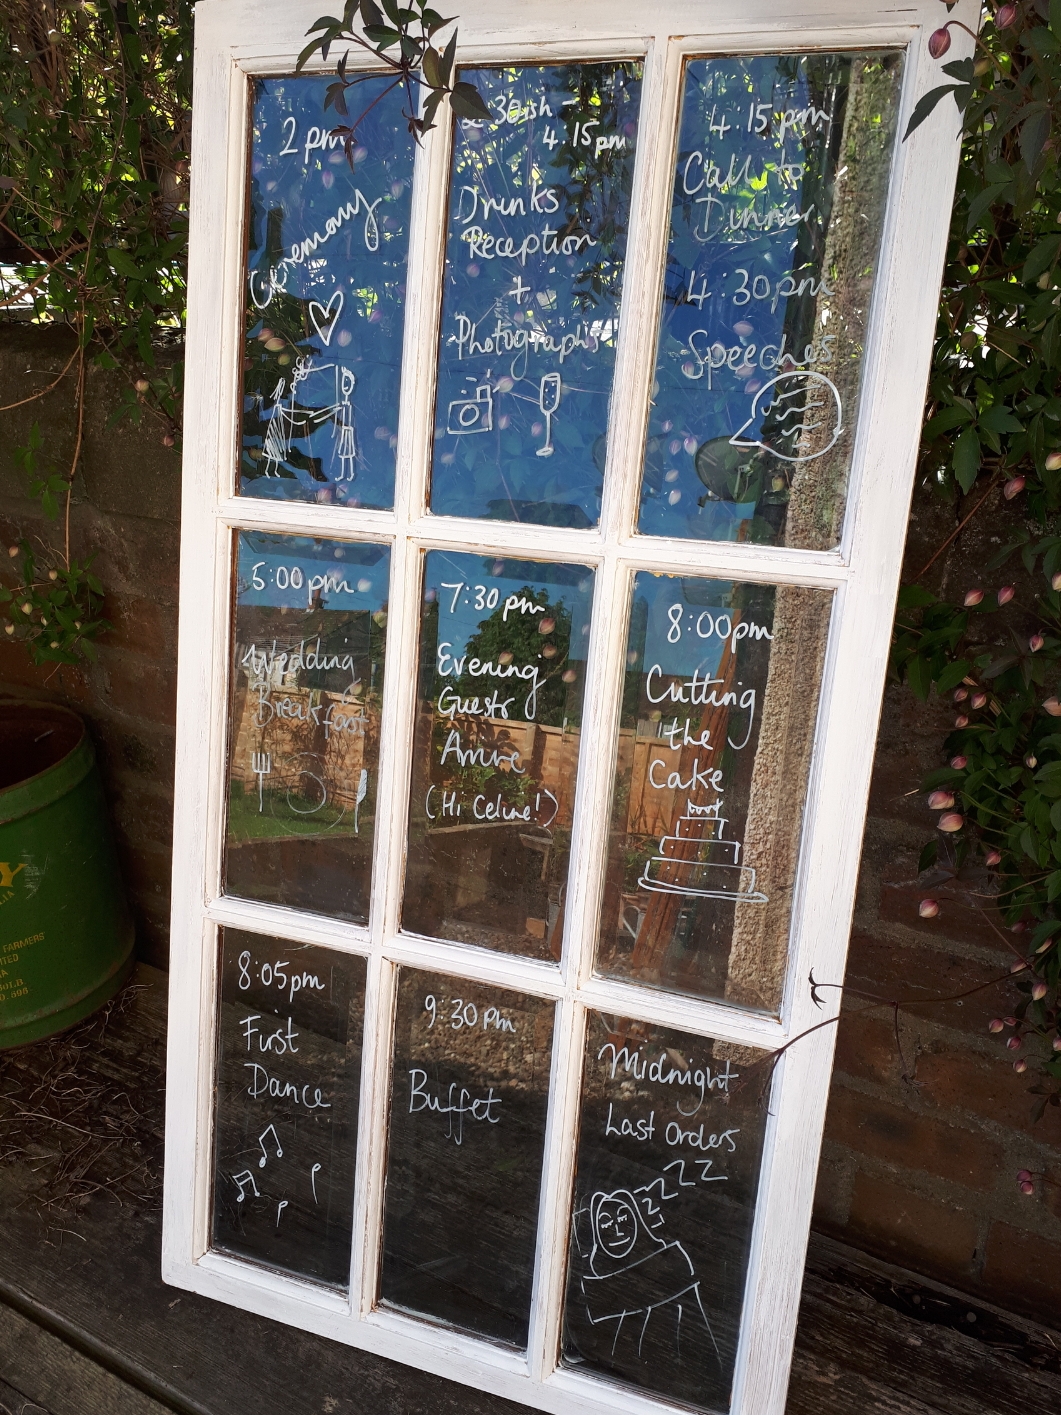 2 pm
Ceremony
30ish -
4.15pm
Drinks
Reception
+
Photographs
4.15 pm
Call to
Dinner
4:30pm
Speeches
5:00pm
Wedding
Breakfast
7:30 pm
Evening
Guests
Arrive
(Hi Celine!)
8:00pm
Cutting
the
Cake
8:05pm
First
Dance
9:30 pm
Buffet
Midnight
Last Orders
ZZZZZ
Y
FARMERS